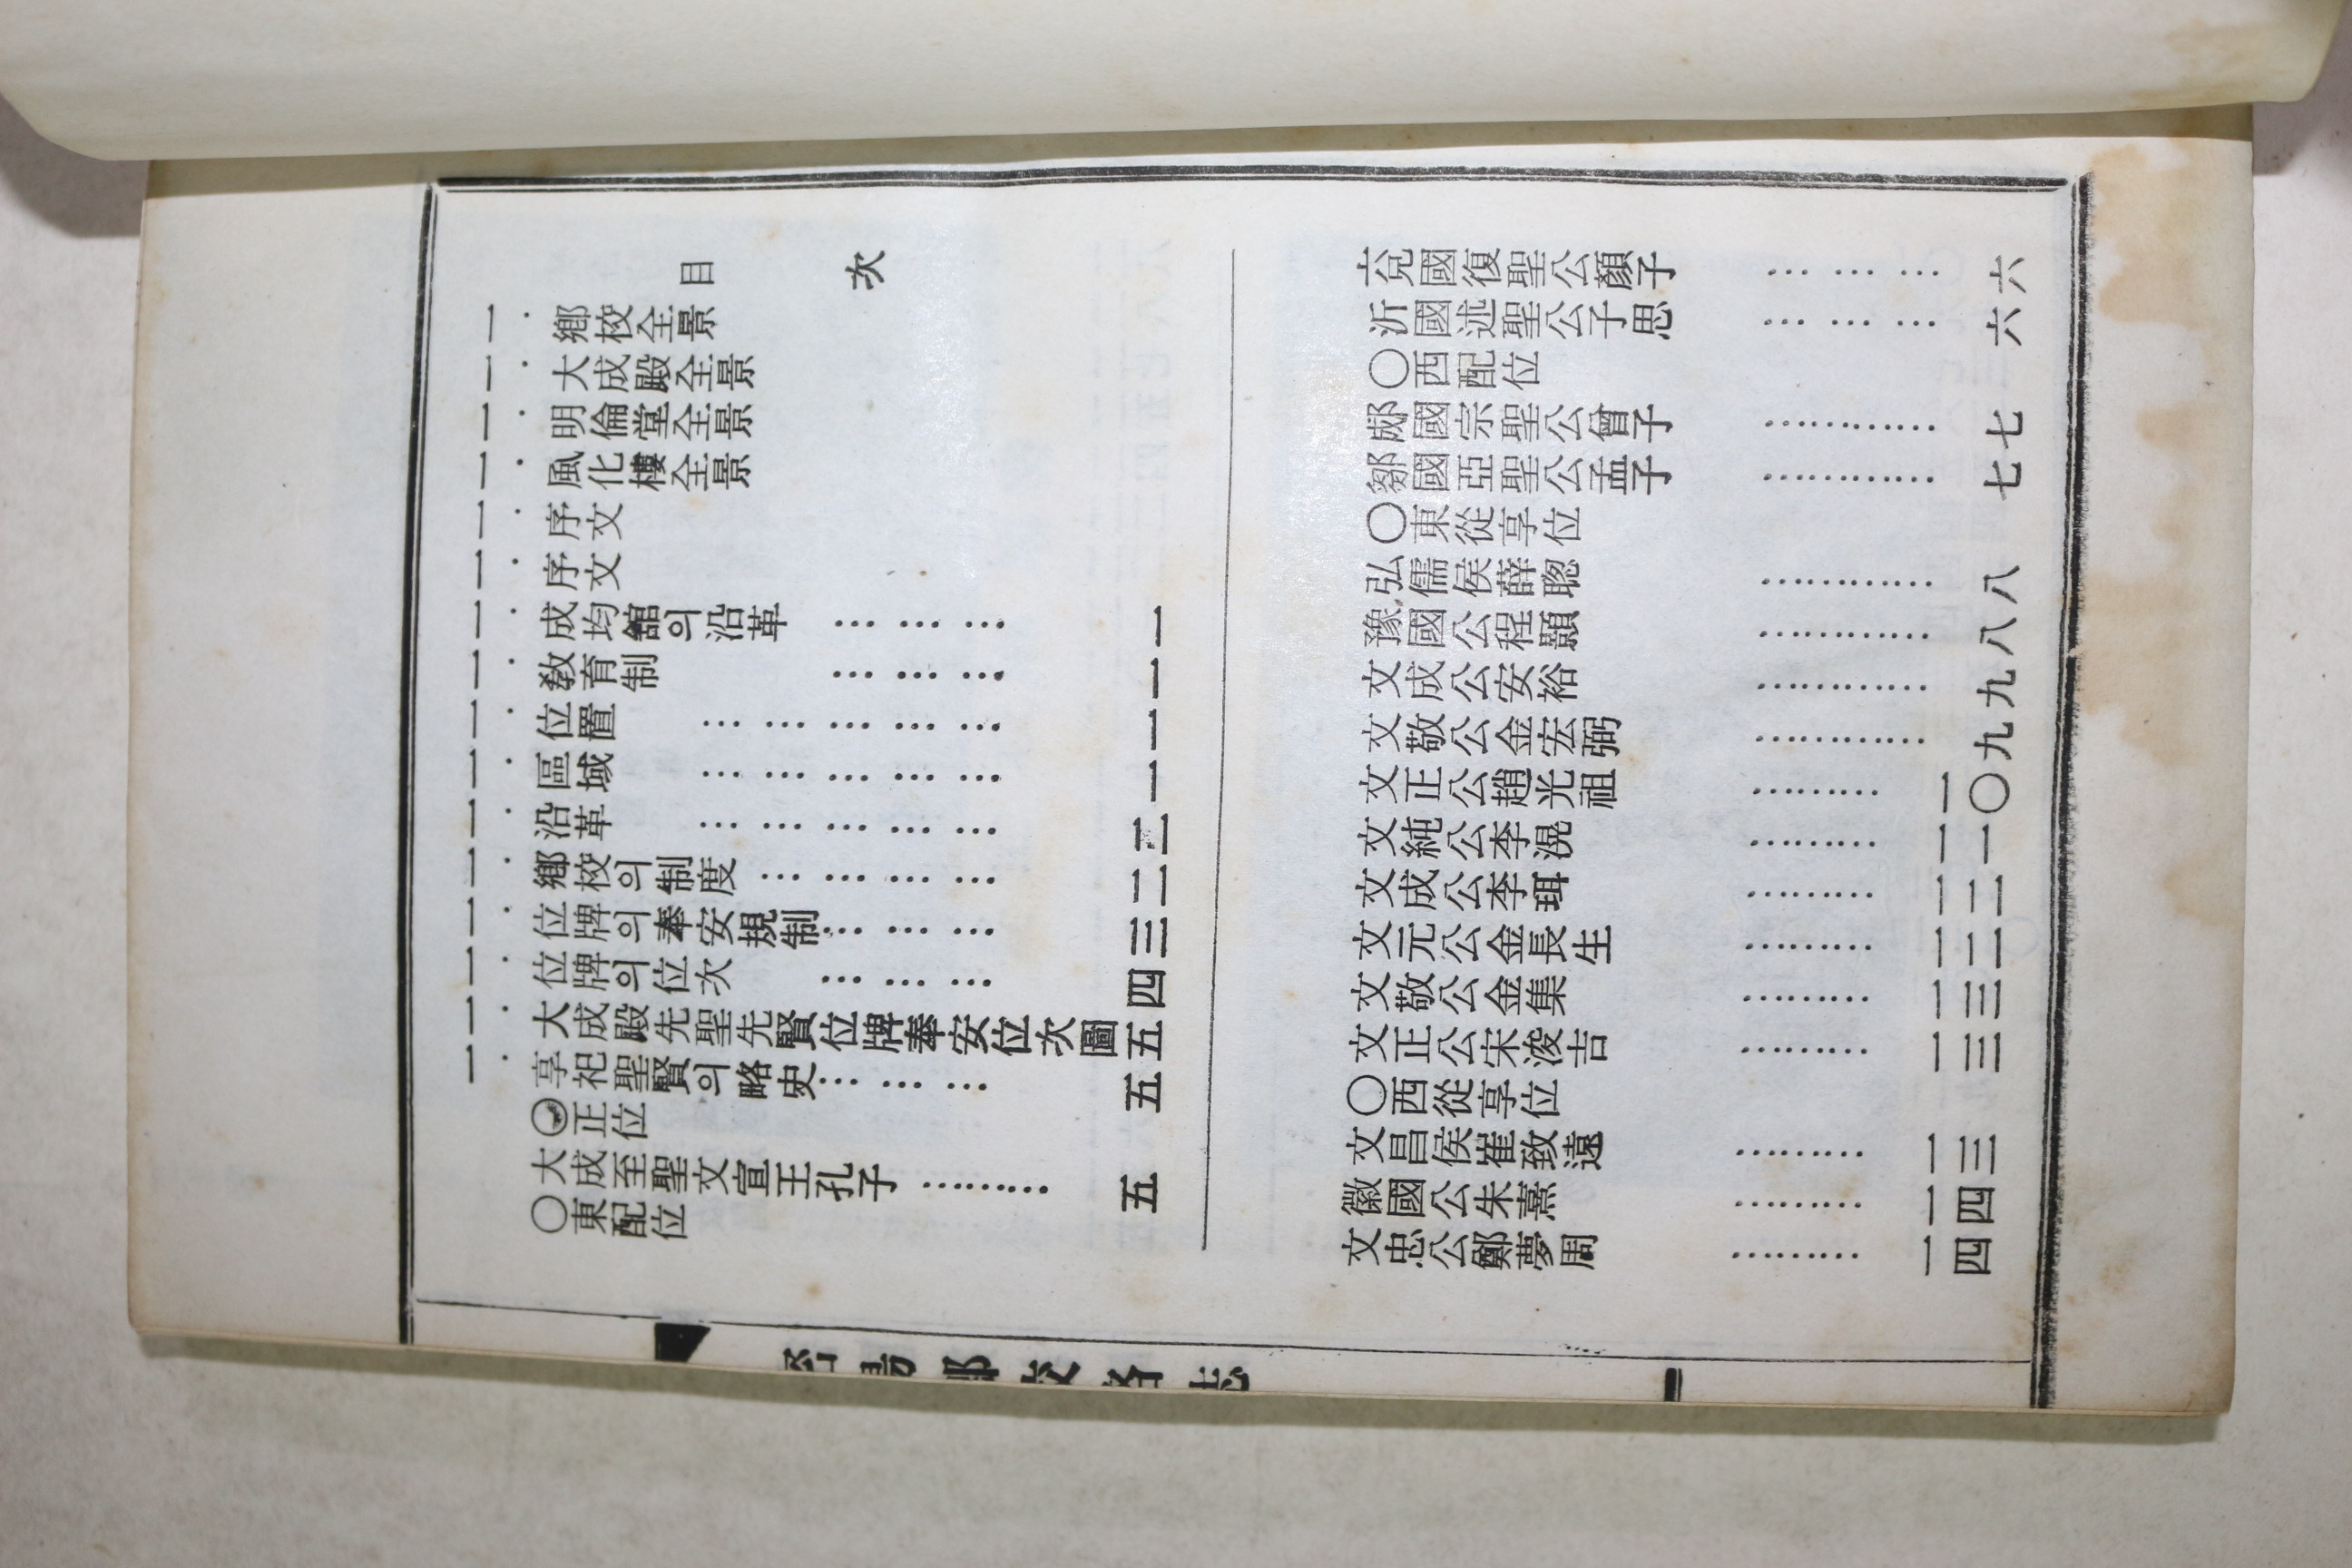 目次
一. 鄕校全景
一. 大成殿全景
一. 明倫堂全景
一. 風化樓全景
一. 序文
一. 序文
一. 成均舘의沿革 ……… 一
一. 敎育制 ……… 一
一. 位置 …………… 一
一. 區域 …………… 一
一. 沿革 …………… 二
一. 鄕校의制度 ………… 二
一. 位牌의奉安規制 ……… 三
一. 位牌의位次 ……… 四
一. 大成殿先聖先賢位牌奉安位次圖 五
一. 享祀聖賢의略史 ……… 五
正位
大成至聖文宣王孔子 ……… 五
○東配位
兗國復聖公顏子 ……… 六
沂國述聖公子思 ……… 六
○西配位
郕國宗聖公曾子 ………… 七
鄒國亞聖公孟子 ………… 七
○東從享位
弘儒侯薛聰 ………… 八
豫國公程顥 ………… 八
文成公安裕 ………… 九
文敬公金宏弼 ………… 九
文正公趙光祖 ……… 一〇
文純公李滉 ……… 一一
文成公李珥 ……… 一二
文元公金長生 ……… 一二
文敬公金集 ……… 一三
文正公宋浚吉 ……… 一三
○西從享位
文昌侯崔致遠 ……… 一三
徽國公朱熹 ……… 一四
文忠公鄭夢周 ……… 一四